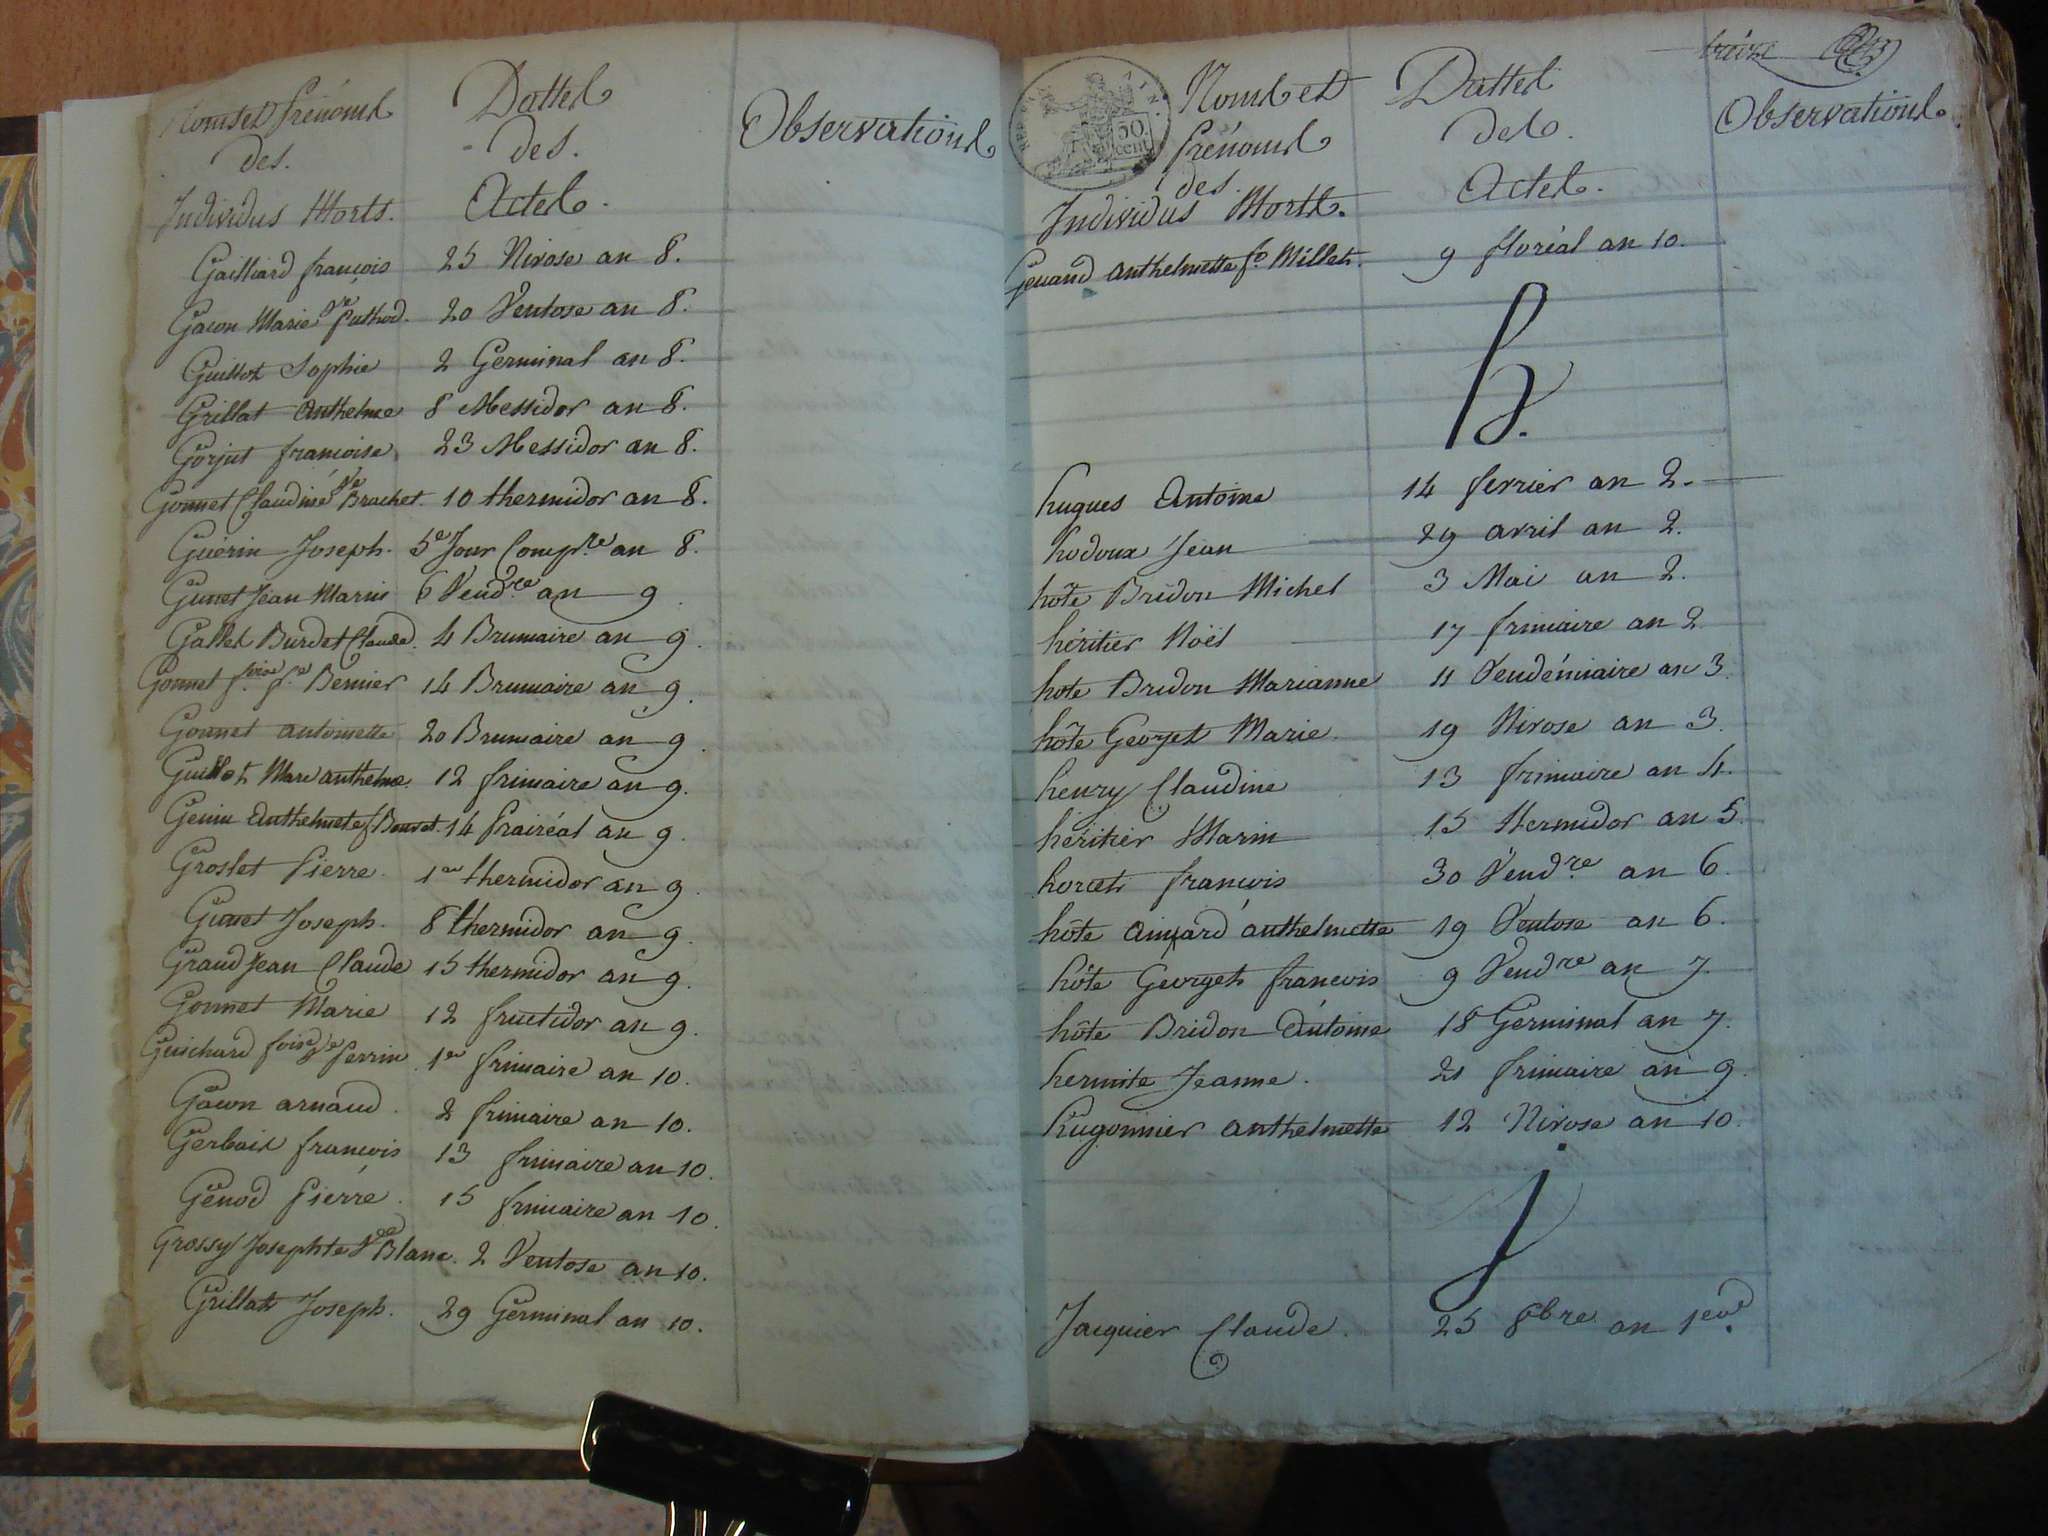 Noms et Prénoms
des.
Individus Morts.
Dattes
des.
Actes.
Observations
Gailliard françois 25 Nivose an 8.
Gacon Marie Ve Puthod. 20 Ventose an 8.
Guillot Sophie 2 Germinal an 8.
Grillat Anthelme 8 Messidor an 8.
Gorjut françoise 23 Messidor an 8.
Gonnet Claudine Ve Brachet. 10 thermidor an 8.
Guérin Joseph. 5e Jour Comp.re an 8.
Gunet Jean Marin 6 Vend.re an 9.
Gallet Burdet Claude. 4 Brumaire an 9.
Gonnet f.oise f.e Bernier 14 Brumaire an 9.
Gonnet antoinette 20 Brumaire an 9.
Guillot Marc anthelme. 12 frimaire an 9.
Genin Anthelmete f. Bouvet. 14 Prairéal an 9.
Groslet Pierre. 1er thermidor an 9.
Gunet Joseph. 8 thermidor an 9.
Graud Jean Claude 15 thermidor an 9.
Gonnet Marie 12 fructidor an 9.
Guichard foise Ve Perrin 1er frimaire an 10.
Gacon arnaud. 2 frimaire an 10.
Gerbaix francois 13 frimaire an 10.
Génod Pierre. 15 frimaire an 10.
Grossy Josephte Vve Blanc. 2 Ventose an 10.
Grillat Joseph. 29 Germinal an 10.
RÉP. FRA.
50.
cent.
Noms et
Prénoms
des.
Individus Morts.
Dattes
des.
Actes.
Observations.
Genand anthelmette fe Millet. 9 floréal an 10.
h.
hugues Antoine 14 fevrier an 2.
hodoux Jean 29 avril an 2.
hôte Bridon Michel 3 Mai an 2.
héritier Noël 17 frimaire an 2
hote Bridon Marianne 11 Vendémiaire an 3.
hôte Georget Marie. 19 Nivose an 3.
henry Claudine 13 frimaire an 4.
héritier Marin 15 thermidor an 5.
horcet francois 30 Vend.re an 6.
hôte aimard anthelmette 19 Ventose an 6.
hôte Georget francois 9 Vend.re an 7.
hôte Bridon Antoine 18 Germinal an 7.
hermite Jeanne. 21 frimaire an 9.
hugonnier anthelmette 12 Nivose an 10.
j
Jacquier Claude. 25 8bre an 1er.